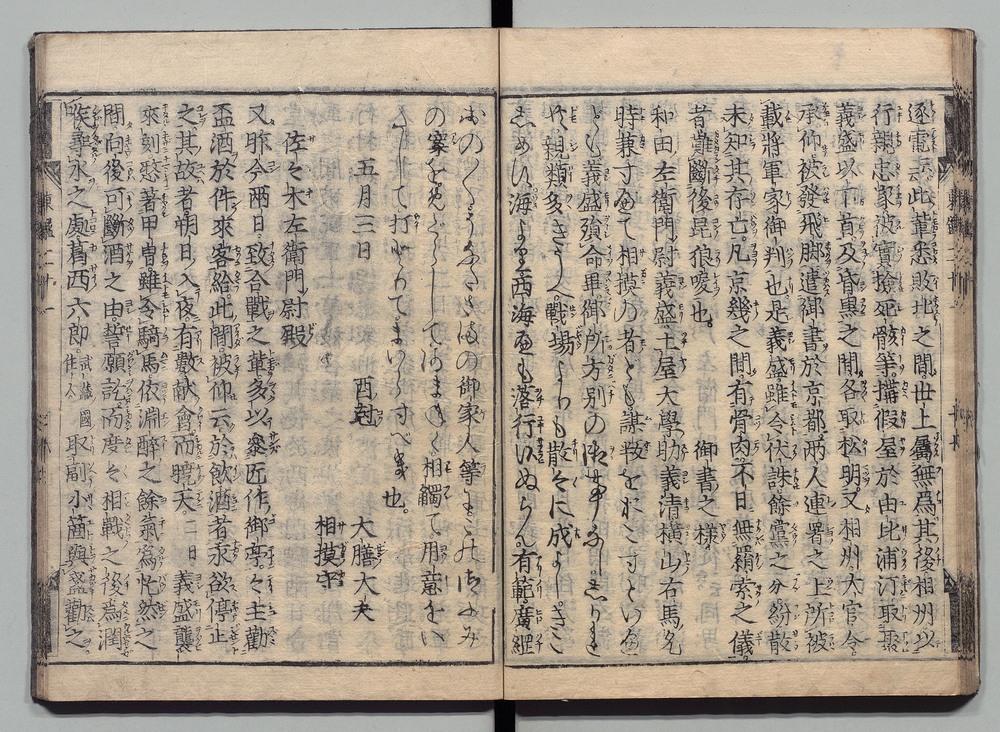 逐電云云此輩悉敗北之間世上屬無爲其後相州以
行親忠家被實撿死骸等搆假屋於由比浦汀取聚
義盛以下首及昏黒之間各取松明又相州大官令
承仰被發飛脚遣御書於京都兩人連署之上所被
載將軍家御判也是義盛雖令伏誅餘黨之分紛散
未知其存亡凡京幾之間有骨肉不日無羂索之儀
者難斷後昆狼唳也。 御書之樣
和田左衛門尉義盛土屋大學助義清横山右馬允
時兼すべて相摸の者とも謀叛をおこすといへ
とも義盛殞命畢御所方別の御事なししかりと
親類多きうへ戰塲よりも散々に成よしきこ
しめす海より西海へも落行いぬらん有範廣綱
おの〱そなたさまの御家人等もこの御ふみ
の案をめくらしてあまねく相觸て用意をい
たして打とりてまいらすべき也。
五月三日 酉尅 大膳大夫
相摸守
佐々木左衛門尉殿
又昨今兩日致合戰之輩多以參匠作御亭々主勸
盃酒於件來客給此間被仰云於飮酒者永欲停止
之其故者朔日入夜有數獻會而曉天二日義盛襲
來刻憖著甲曹雖令騎馬依淵醉之餘氣爲忙然之
間向後可斷酒之由誓願訖而度々相戰之後爲潤
喉尋水之處葛西六郎武藏國住人取副小筒與盞勸之